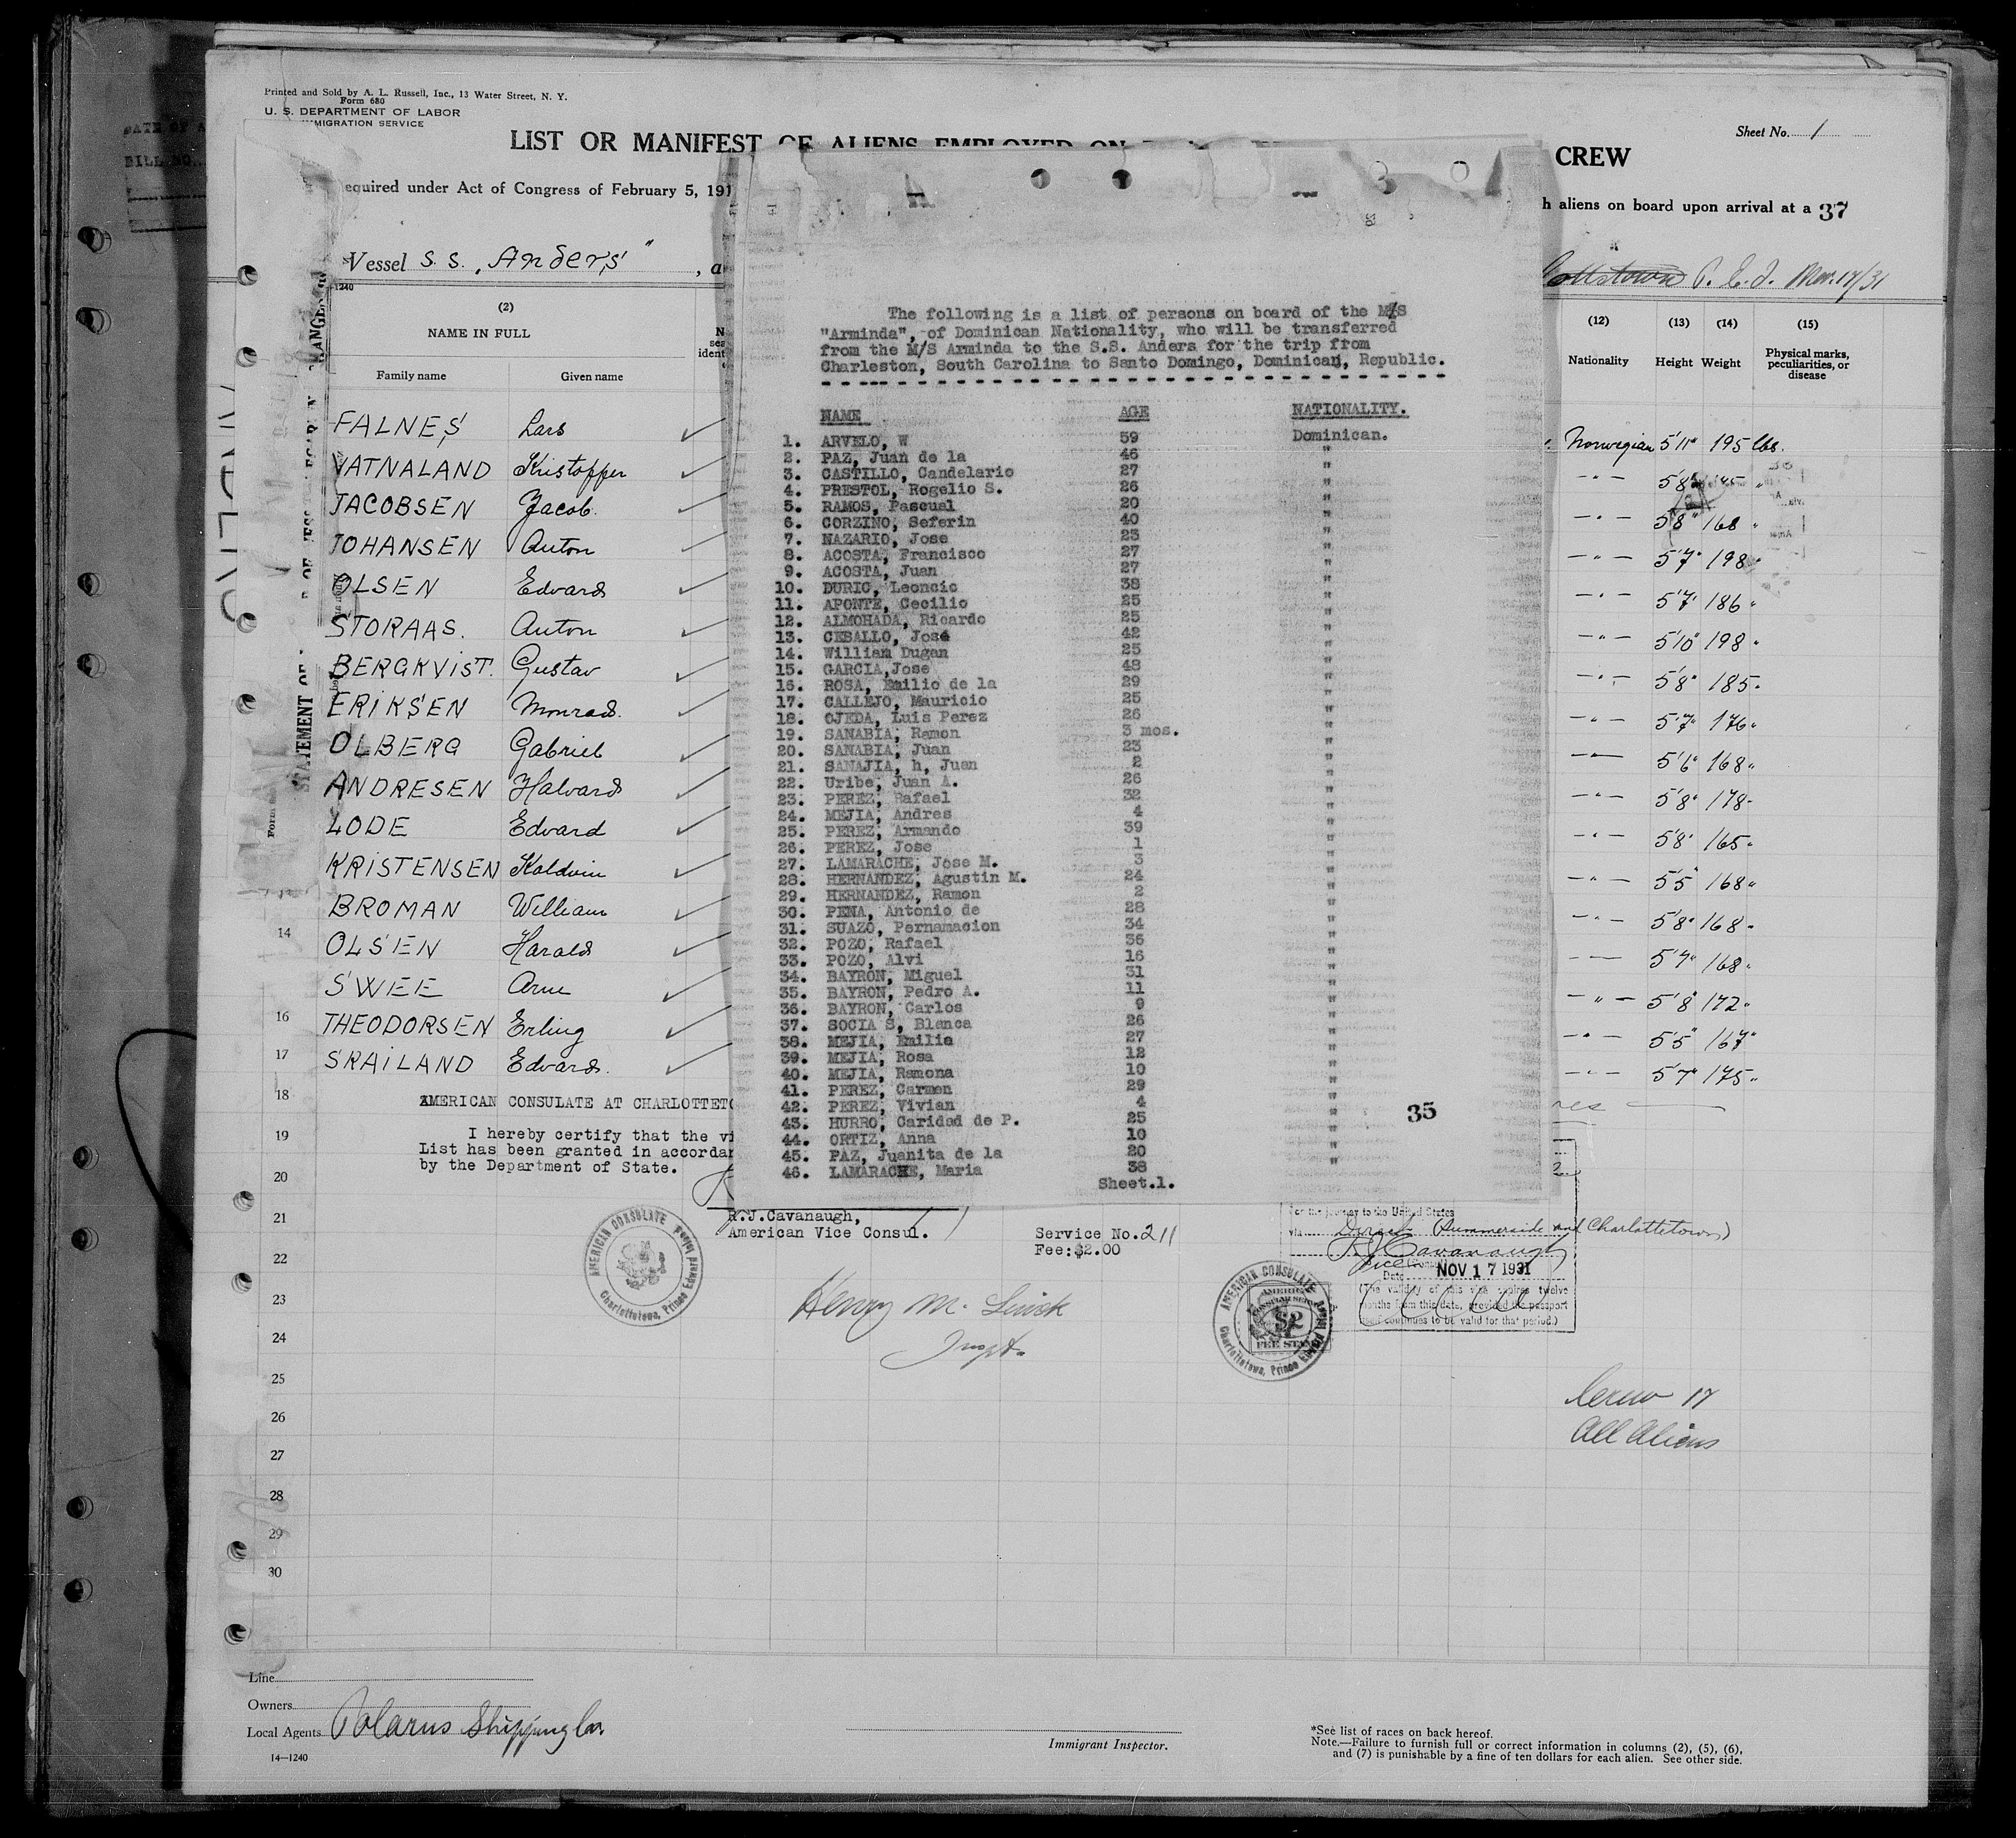 Printed and Sold by A. L. Russell, Inc., 13 Water Street, N. Y.
Form 680
U. S. DEPARTMENT OF LABOR
MIGRATION SERVICE
Sheet No. 1
LIST OR MANIFEST OF ALIENS EMPLOYED ON
CREW
equired under Act of Congress of February 5, 191
h aliens on board upon arrival at a 37
Vessel S. S. "Anders"
, a
P. E. I. Nov. 17/31
1240
(2)
NAME IN FULL
Family name Given name
(12) (13) (14) (15)
Nationality Height Weight Physical marks, peculiarities, or disease
FALNES Lars
VATNALAND Kristoffer
JACOBSEN Jacob.
JOHANSEN Anton
OLSEN Edvard
STORAAS. Anton
BERGKVIST. Gustav
ERIKSEN Monrad.
OLBERG Gabriel
ANDRESEN Halvard
LODE Edvard
KRISTENSEN Kaldvin
BROMAN William
14 OLSEN Harald
SWEE Arne
16 THEODORSEN Erling
17 SRAILAND Edvard.
The following is a list of persons on board of the M/S
"Arminda", of Dominican Nationality, who will be transferred
from the M/S Arminda to the S.S. Anders for the trip from
Charleston, South Carolina to Santo Domingo, Dominican, Republic.
NAME AGE NATIONALITY.
1. ARVELO, W 59 Dominican.
2. PAZ, Juan de la 46 "
3. CASTILLO, Candelario 27 "
4. PRESTOL, Rogelio S. 26 "
5. RAMOS, Pascual 20 "
6. CORZINO, Seferin 40 "
7. NAZARIO, Jose 23 "
8. ACOSTA, Francisco 27 "
9. ACOSTA, Juan 27 "
10. DURIC, Leoncio 38 "
11. APONTE, Cecilio 25 "
12. ALMOHADA, Ricardo 25 "
13. CEBALLO, José 42 "
14. William Dugan 25 "
15. GARCIA,Jose 48 "
16. ROSA, Emilio de la 29 "
17. CALLEJO, Mauricio 25 "
18. OJEDA, Luis Perez 26 "
19. SANABIA, Ramon 3 mos. "
20. SANABIA, Juan 23 "
21. SANAJIA, h, Juan 2 "
22. Uribe, Juan A. 26 "
23. PEREZ, Rafael 32 "
24. MEJIA, Andres 4 "
25. PEREZ, Armando 39 "
26. PEREZ, Jose 1 "
27. LAMARACHE, Jose M. 3 "
28. HERNANDEZ, Agustin M. 24 "
29. HERNANDEZ, Ramon 2 "
30. PENA, Antonio de 28 "
31. SUAZO, Pernamacion 34 "
32. POZO, Rafael 36 "
33. POZO, Alvi 16 "
34. BAYRON, Miguel 31 "
35. BAYRON, Pedro A. 11 "
36. BAYRON, Carlos 9 "
37. SOCIA S, Blanca 26 "
38. MEJIA, Emilia 27 "
39. MEJIA, Rosa 12 "
40. MEJIA, Ramona 10 "
41. PEREZ, Carmen 29 "
42. PEREZ, Vivian 4 "
43. HURRO, Caridad de P. 25 "
44. ORTIZ, Anna 10 "
45. PAZ, Juanita de la 20 "
46. LAMARACHE, Maria 38
Sheet.1.
35
Norwegian 5'11" 195 lbs.
— " — 5'8" 
— " — 5'8" 168 "
— " — 5'7" 198 "
— " — 5'7" 186 "
— " — 5'10" 198 "
— " — 5'8" 185 "
— " — 5'7" 176 "
— " — 5'6" 168 "
— " — 5'8" 178 "
— " — 5'8" 165 "
— " — 5'5" 168 "
— " — 5'8" 168 "
— " — 5'7" 168 "
— " — 5'8" 172 "
— " — 5'5" 167 "
— " — 5'7" 175 "
18 AMERICAN CONSULATE AT CHARLOTTETO
19 I hereby certify that the vi
List has been granted in accordan
by the Department of State.
20
21
22
23
24
25
26
27
28
29
30
R.J.Cavanaugh,
American Vice Consul.
Service No. 211
Fee:$2.00
AMERICAN CONSULATE
Charlottetown, Prince Edward Island
For the journey to the United States
via Direct (Summerside and Charlottetown)
R J Cavanaugh
Vice Consul
Date NOV 17 1931
(The validity of this visa expires twelve
months from this date, provided the passport
continues to be valid for that period.)
AMERICAN CONSULATE
Charlottetown, Prince Edward Island
$2
FEE STAMP
Henry M.
Inspt.
Crew 17
All Aliens
Line
Owners
Local Agents Polarus Shipping Co.
14—1240
Immigrant Inspector.
*See list of races on back hereof.
Note.—Failure to furnish full or correct information in columns (2), (5), (6),
and (7) is punishable by a fine of ten dollars for each alien. See other side.